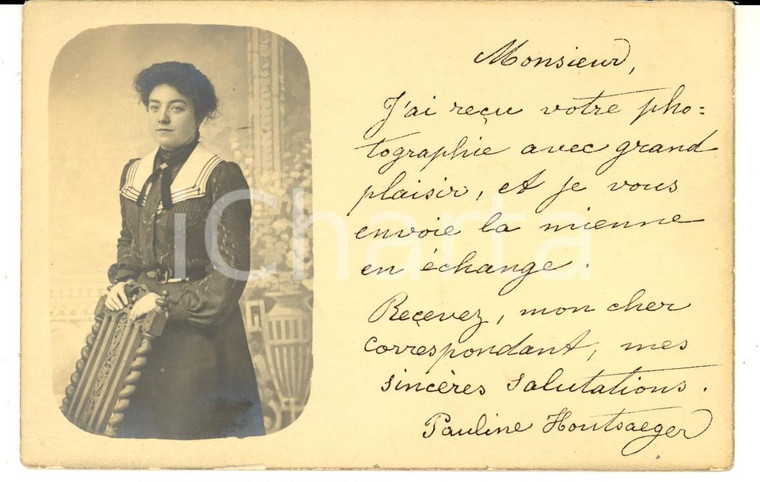 Monsieur,
J'ai reçu votre pho=
tographie avec grand
plaisir, et je vous
envoie la mienne
en échange.
Recevez, mon cher
correspondant, mes
sincères salutations.
Pauline Houtsaeger
iCharta